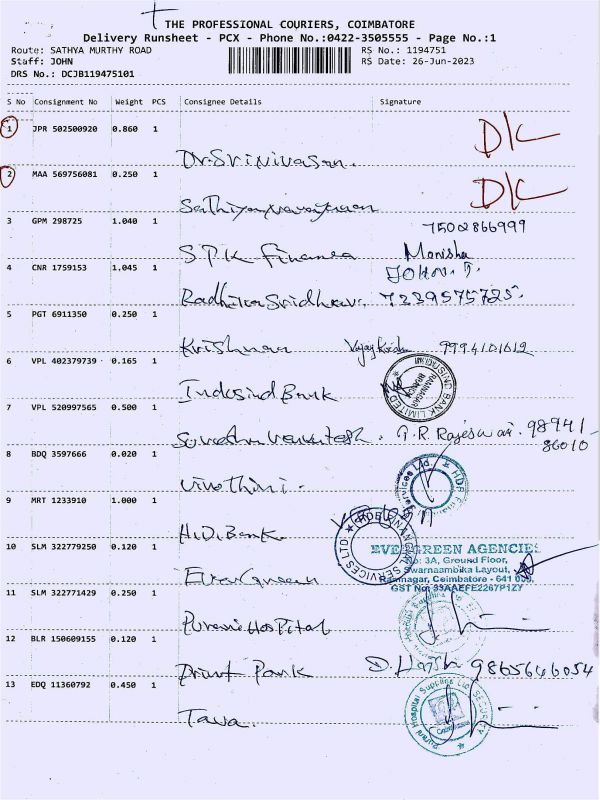 THE PROFESSIONAL COURIERS, COIMBATORE
Delivery Runsheet - PCX - Phone No.:0422-3505555 - Page No.:1
Route: SATHYA MURTHY ROAD
RS No.: 1194751
Staff: JOHN
RS Date: 26-Jun-2023
DRS No.: DCJB119475101
S No Consignment No Weight PCS Consignee Details Signature
1 JPR 502500920 0.860 1
D/C
Dr. Srinivasan.
2 MAA 569756081 0.250 1
D/C
3 GPM 298725 1.040 1
7502866999
SPK Finance Monisha
4 CNR 1759153 1.045 1
Radhika Sridhar. 7339575725.
5 PGT 6911350 0.250 1
Krishnan 9994101612
6 VPL 402379739 0.165 1
Indusind Bank
INDUSIND BANK LIMITED
RAMNAGAR BRANCH
7 VPL 520997565 0.500 1
Suresh Venkatesh. G.R. Rajeswari. 98941-
86010
8 BDQ 3597666 0.020 1
Vinothini.
9 MRT 1233910 1.000 1
Bank
HDB FINANCIAL SERVICES LTD
10 SLM 322779250 0.120 1
Evergreen
EVERGREEN AGENCIES
No: 3A, Ground Floor,
Swarnaambika Layout,
Ramnagar, Coimbatore - 641 009.
GST No: 33AAEFE2267P1ZY
11 SLM 322771429 0.250 1
Hospital
12 BLR 150609155 0.120 1
Print Park D. 9865646054
13 EDQ 11360792 0.450 1
Tava.
Purani Hospital Supplies Ltd SECURITY